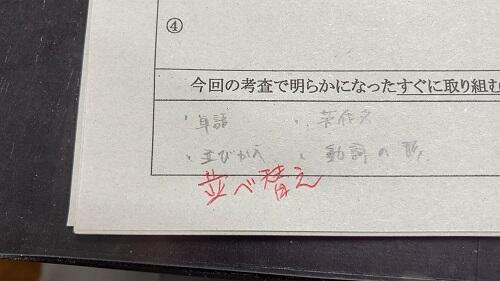 ④
今回の考査で明らかになったすぐに取り組む
・単語 ・英作文
・並びかえ ・動詞の形
並べ替え